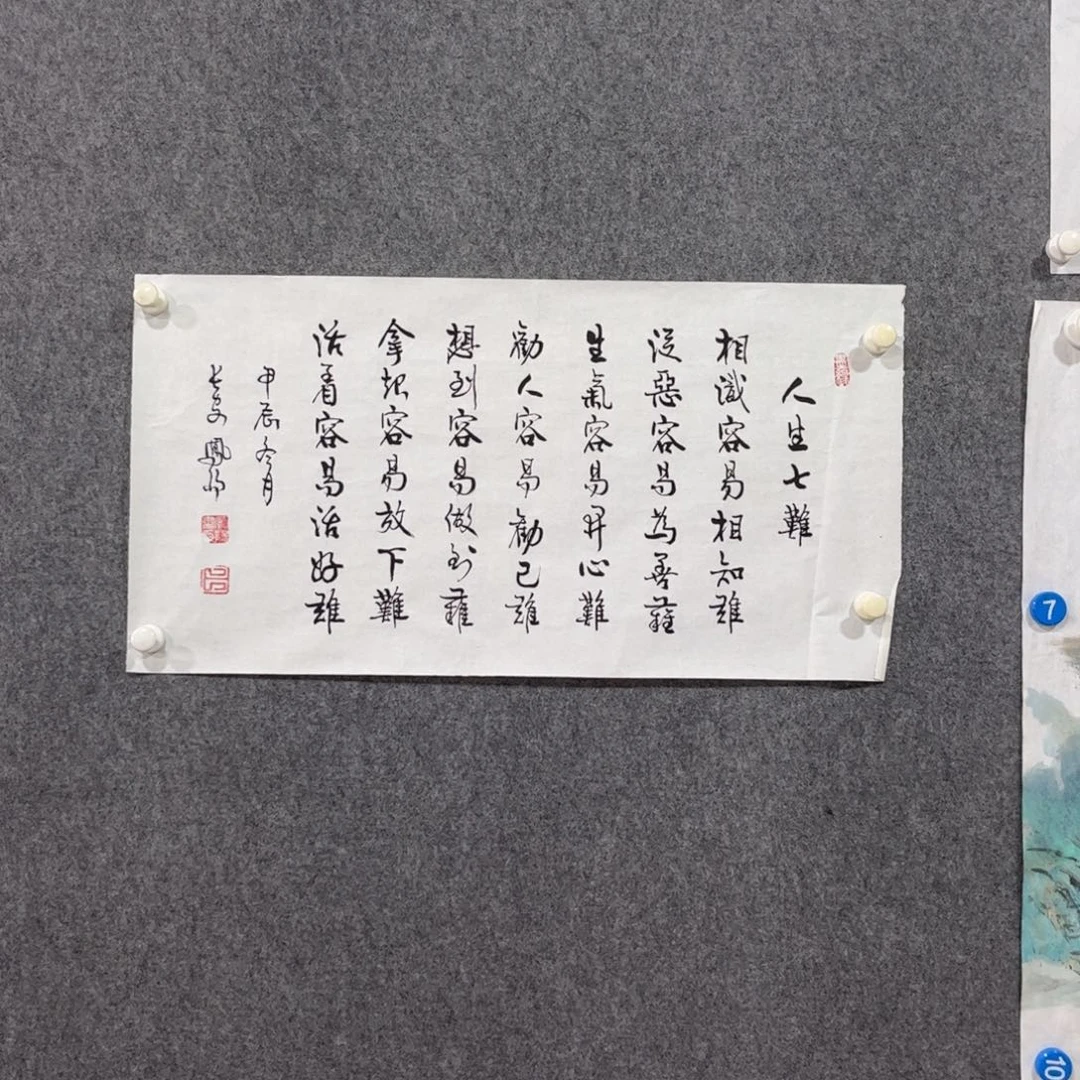 人生七難
相識容易相知難
從惡容易為善難
生氣容易開心難
勸人容易勸己難
想到容易做到難
拿起容易放下難
活着容易活好難
甲辰冬月
長安
7
10